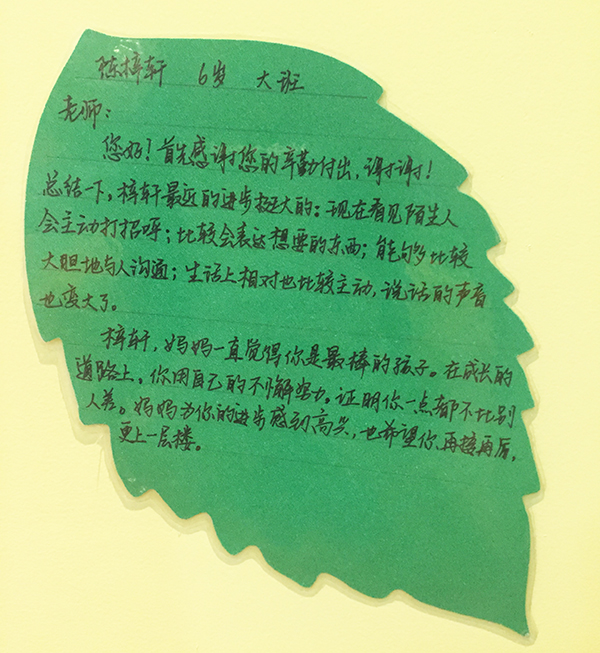 陈梓轩 6岁 大班
老师：
您好！首先感谢您的辛勤付出，谢谢！
总结一下，梓轩最近的进步挺大的：现在看见陌生人
会主动打招呼；比较会表达想要的东西；能够比较
大胆地与人沟通；生活上相对也比较主动，说话的声音
也变大了。
梓轩，妈妈一直觉得你是最棒的孩子。在成长的
道路上，你用自己的不懈努力。证明你一点都不比别
人差。妈妈为你的进步感到高兴，也希望你再接再厉，
更上一层楼。